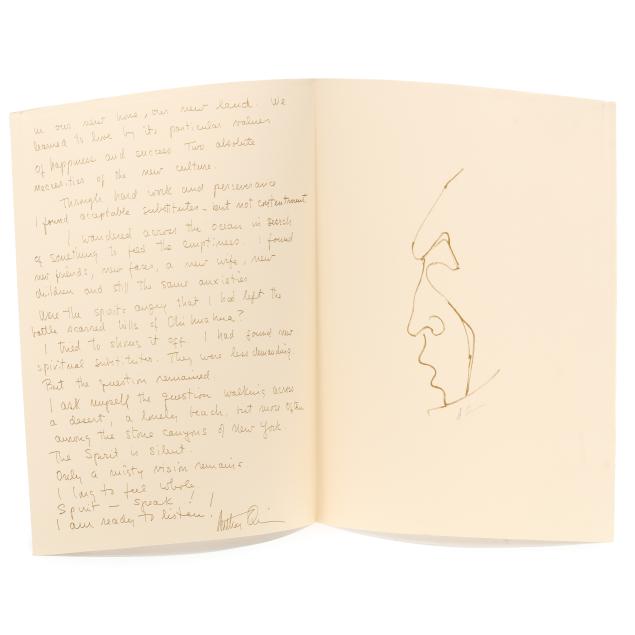 in our new home, our new land. We
learned to live by its particular values
of happiness and success. Two absolute
necessities of the new culture.
Through hard work and perseverance
I found acceptable substitutes - but not contentment.
I wandered across the ocean in search
of something to feed the emptiness. I found
new friends, new faces, a new wife, new
children and still the same anxieties
Were the spirits angry that I had left the
battle scarred hills of Chihuahua?
I tried to shrug it off. I had found new
spiritual substitutes. They were less demanding.
But the question remained.
I ask myself the question walking across
a desert, a lonely beach, but more often
among the stone canyons of New York.
The Spirit is Silent.
Only a misty vision remains
I long to feel whole
Spirit - speak!
I am ready to listen!
Anthony Quinn